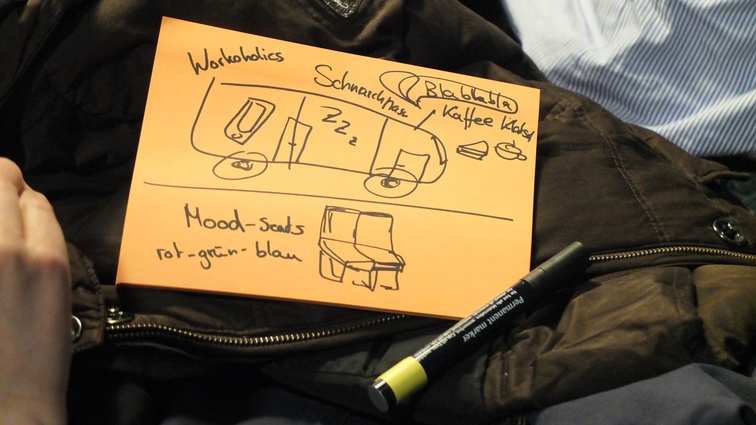 Workoholics
Schnarchnase
Blablabla
Kaffee Klatsch
ZZz
Mood-Seats
rot-grün-blau
Permanent marker